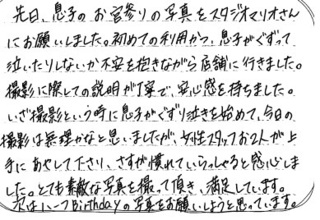 先日、息子のお宮参りの写真をスタジオマリオさん
にお願いしました。初めての利用かつ、息子がぐずって
泣いたりしないか不安を抱きながら店舗に行きました。
撮影に際しての説明が丁寧で、安心感を持ちました。
いざ撮影という時に息子がぐずり泣きを始めて、今日の
撮影は無理かなと思いましたが、女性スタッフお2人が上
手にあやして下さり、さすが慣れていらっしゃると感心しま
した。とても素敵な写真を撮って頂き、満足しています。
次はハーフBirthdayの写真をお願いしようと思っています。